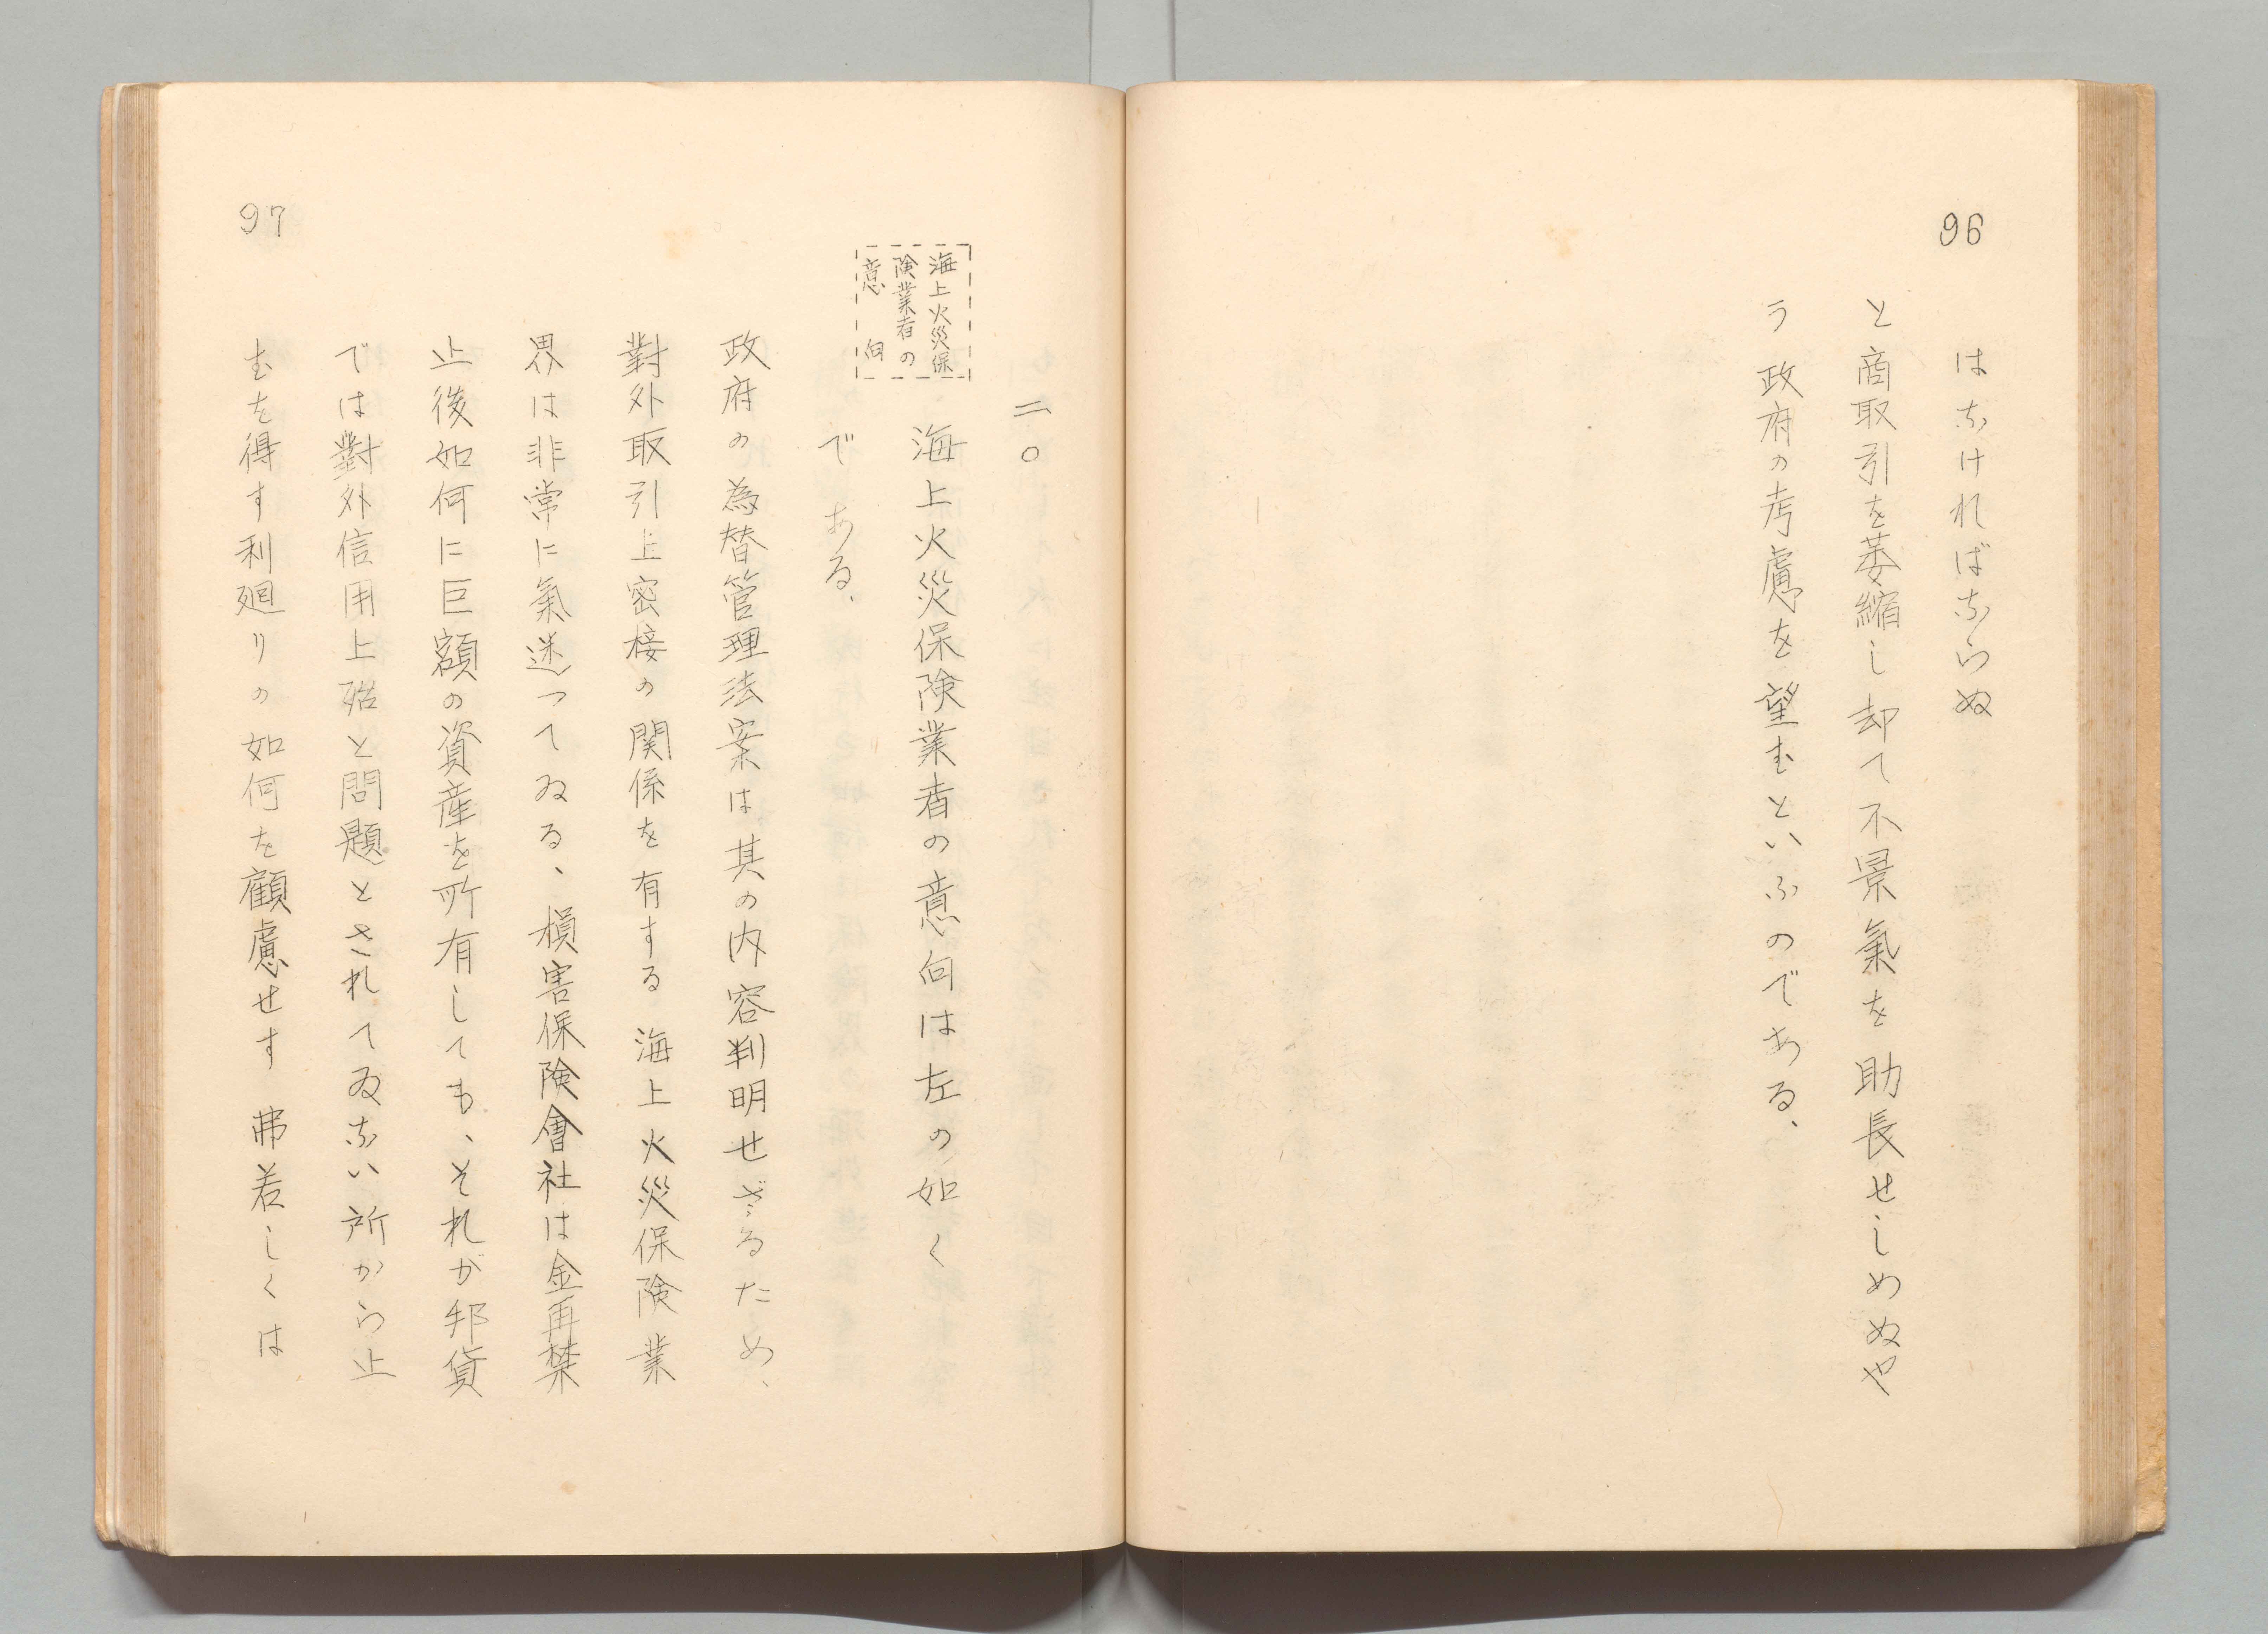 96
はなければならぬ
と商取引を萎縮し却て不景氣を助長せしめぬや
う政府の考慮を望むといふのである、
97
二〇
海上火災保
険業者の
意向
海上火災保険業者の意向は左の如く
である、
政府の為替管理法案は其の内容判明せざるため、
對外取引上密接の関係を有する海上火災保険業
界は非常に氣迷つてゐる、損害保険會社は金再禁
止後如何に巨額の資産を所有しても、それが邦貨
では對外信用上殆と問題とされてゐない所から止
むを得す利廻りの如何を顧慮せす弗若しくは